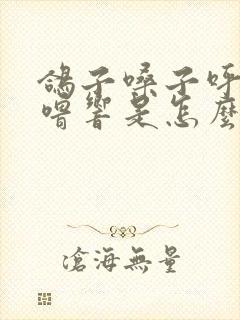 鴿子嗓子呼
嚕響是怎麼
滄海無量